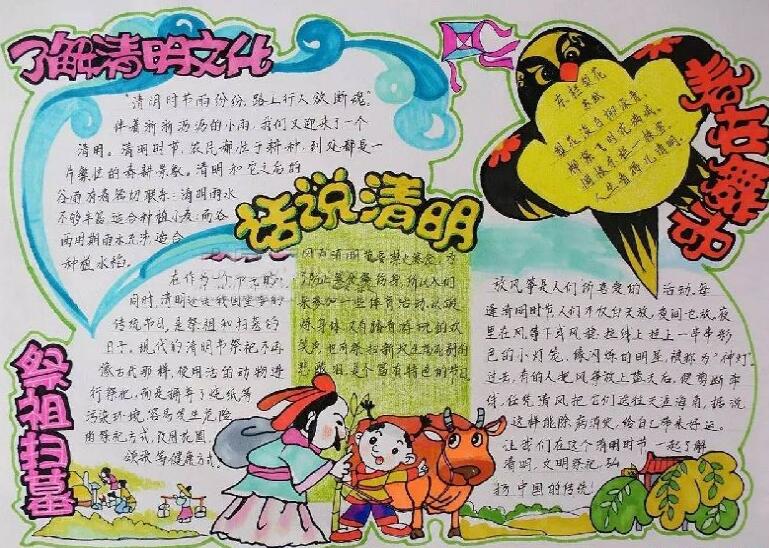 了解清明文化
"清明时节雨份份，路上行人欲断魂。"
伴着淅淅沥沥的小雨，我们又迎来了一个
清明。清明时节，农民都忙于耕种，到处都是一
片繁忙的春耕景象。清明和它之后的
谷雨有着密切联系：清明雨水
不够丰富，适合种植小麦；而谷
雨时期雨水充沛，适合
种植水稻。
话说清明
在作为一个节
同时，清明还是我国重要的
传统节日，是祭祖和扫墓的
日子。现代的清明节祭祀不再
像古代那样，使用活的动物进
行祭祀，而是摒弃了烧纸等
污染环境、容易发生危险
的祭祀方式，改用花圈、
颂词等健康方式。
因为清明节要禁火寒食，为
了防止寒食伤身，所以人们
来参加一些体育活动，以锻
炼身体。又有踏青游玩的欢
笑声，也有祭扫新坟生死离别的
悲酸泪，是个富有特色的节日。
东栏梨花
梨花淡白柳深青，
柳絮飞时花满城。
惆怅东栏一株雪，
人生看得几清明。
放风筝是人们所喜爱的活动，每
逢清明时节，人们不仅白天放，夜间也放，夜
里在风筝下或风筝拉线上挂上一串串彩
色的小灯笼，像闪烁的明星，被称为"神灯"。
过去，有的人把风筝放上蓝天后，便剪断牵
线，任凭清风把它们送往天涯海角，据说
这样能除病消灾，给自己带来好运。
让我们在这个清明时节，一起了解
清明，文明祭祀，弘
扬中国的传统！